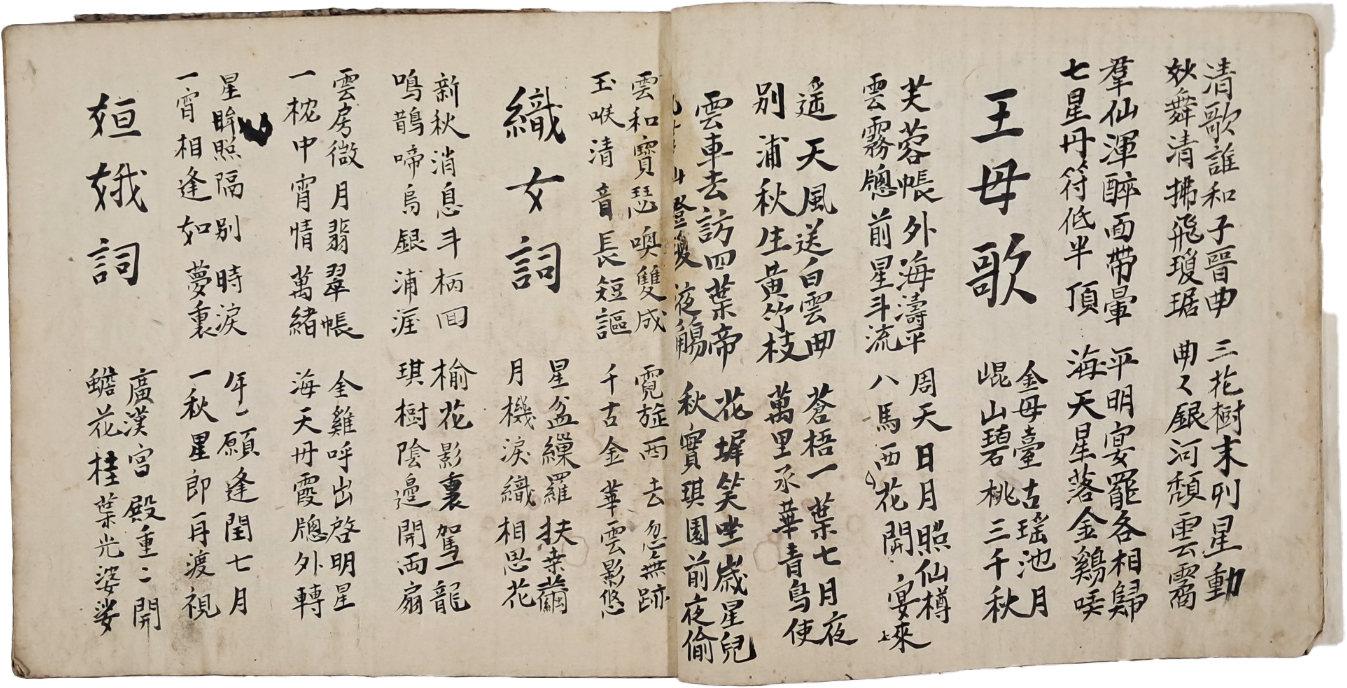 清歌誰和子晉曲 三花樹末列星動
妙舞清拂飛瓊琚 曲々銀河頹雲霱
羣仙渾醉面帶暈 平明宴罷各相歸
七星丹符低半頂 海天星落金鷄
王母歌
金母臺古瑤池月
崐山碧桃三千秋
芙蓉帳外海濤平 周天日月照仙樽
雲霧牕前星斗流 八馬西花開宴來
遥天風送白雲曲 蒼梧一葉七月夜
别浦秋生黃竹枝 萬里承華青鳥使
雲車去訪四葉帝 花墀笑坐歲星兒
山燈煖夜觴 秋實琪園前夜偷
雲和寶瑟喚雙成 霓旌西去忽無跡
玉喉清音長短謳 千古金華雲影悠
織女詞
星盆繰羅扶桑繭
月機淚織相思花
新秋消息斗柄回 榆花影裏駕龍
鳴鵲啼烏銀浦涯 琪樹陰邊開兩扇
雲房微月翡翠帳 金雞呼出啓明星
一枕中宵情萬緒 海天丹霞牕外轉
星眸照隔别時淚 年〻願逢閏七月
一宵相逢如夢裏 一秋星郎再渡視
姮娥詞
廣漢宮殿重〻開
蟾花桂葉光婆娑